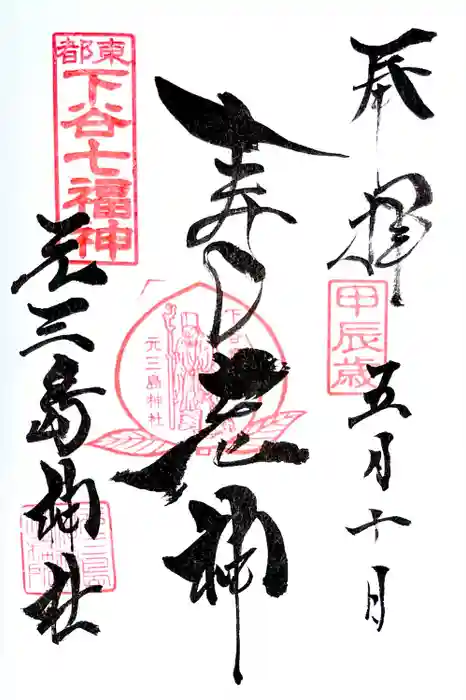 奉拝
甲辰歳
五月十日
寿老神
下谷
元三島神社
東都
下谷七福神
元三島神社